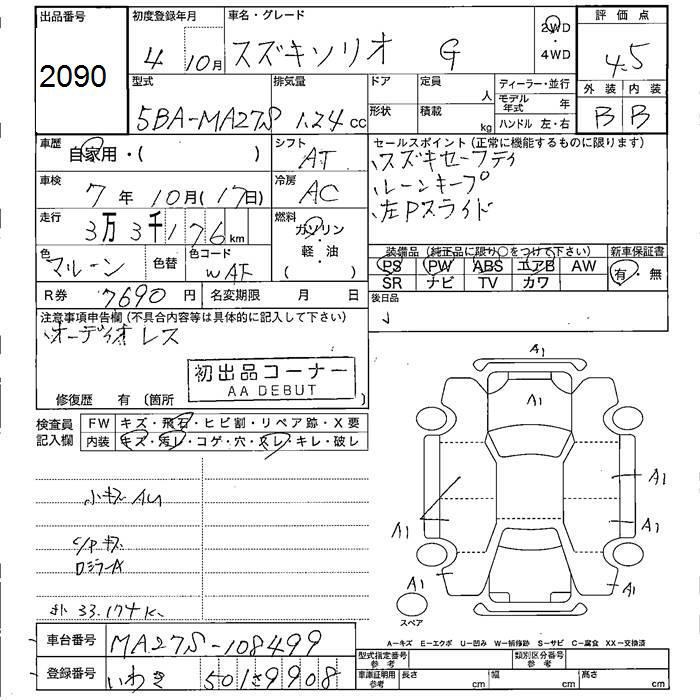 出品番号 初度登録年月 車名・グレード 2WD 評価点
2090 4 10月 スズキソリオ G ・4WD 4.5
型式 排気量 ドア 定員 人 ディーラー・並行 外装 内装
5BA-MA27S 1.24 cc 形状 積載 kg モデル年式 年 B B
ハンドル 左・右
車歴 自家用・( ) シフト AT セールスポイント (正常に機能するものに限ります)
スズキセーフティ
車検 7年 10月(17日) 冷房 AC レーンキープ
左Pスライド
走行 3万3千176km 燃料 ガソリン・軽・油 ( )
色 マルーン 色替 色コード 装備品 (純正品に限り○をつけて下さい) 新車保証書
PS PW ABS エアB AW 有・無
SR ナビ TV カワ
R券 7690円 名変期限 月 日 後日品
注意事項申告欄 (不具合内容等は具体的に記入して下さい)
オーディオレス
初出品コーナー
AA DEBUT
修復歴 有 〔箇所 〕
検査員記入欄 FW キズ・飛石・ヒビ割・リペア跡・X要
内装 キズ・汚レ・コゲ・穴・スレ・キレ・破レ
A1
A1
A1
A1
A1
A1
A1
A1
小キズ AU
C/Pキズ
33.174K
スペア
A-キズ E-エクボ U-凹み W-補修跡 S-サビ C-腐食 XX-交換済
車台番号 MA27S-108499 型式指定番号 参考 類別区分番号 参考
登録番号 いわき 501 さ 9908 車庫証明用 参考 長さ cm 幅 cm 高さ cm